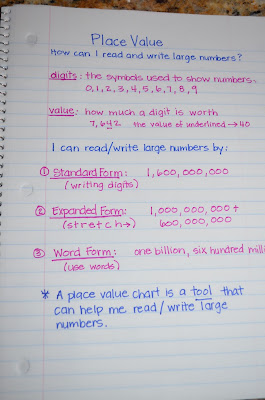 Place Value
How can I read and write large numbers?
digits: the symbols used to show numbers:
0,1,2,3,4,5,6,7,8,9
value: how much a digit is worth
7,642 the value of underlined → 40
I can read/write large numbers by:
① Standard Form: 1,600,000,000
(writing digits)
② Expanded Form: 1,000,000,000 +
(stretch→) 600,000,000
③ Word Form: one billion, six hundred milli
(use words)
* A place value chart is a tool that
can help me read/write large
numbers.